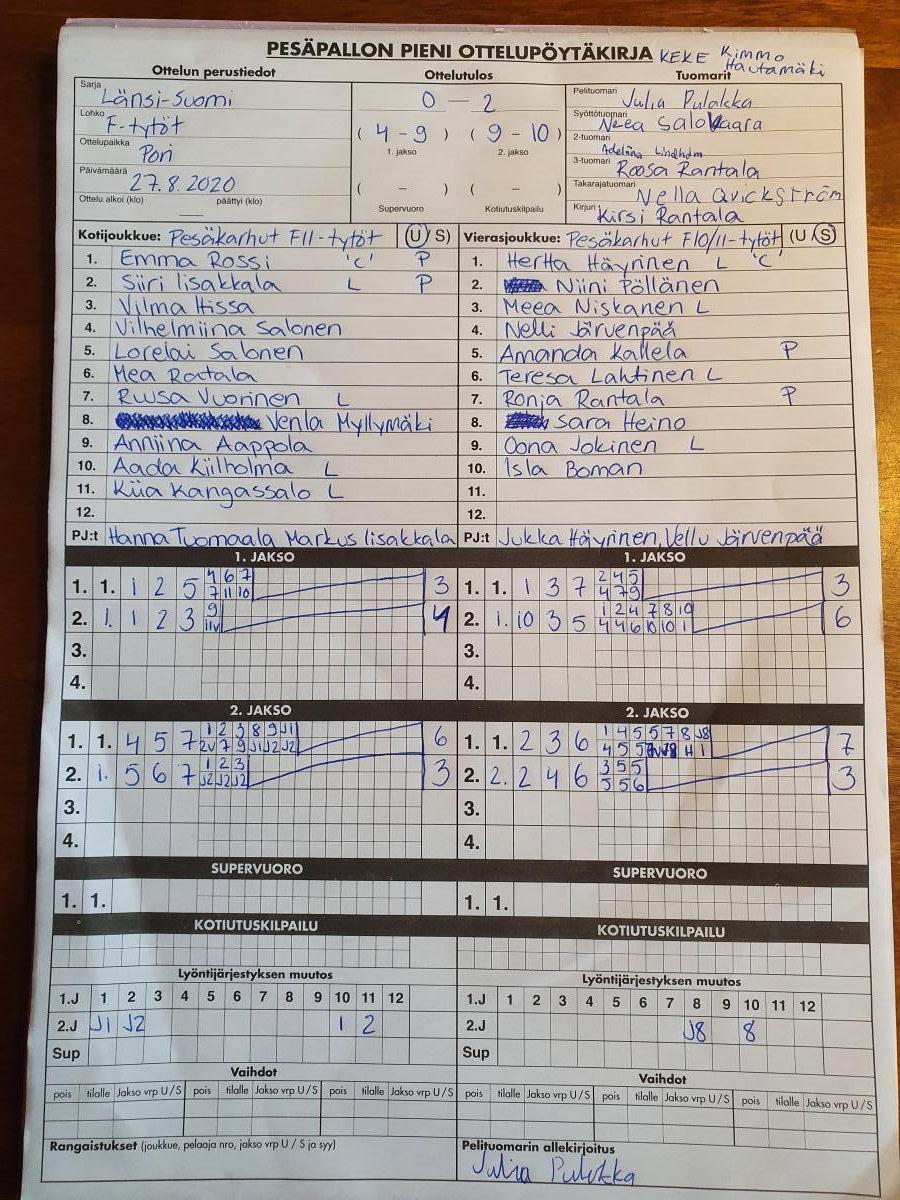 PESÄPALLON PIENI OTTELUPÖYTÄKIRJA KEKE Kimmo Hautamäki
Ottelun perustiedot Ottelutulos Tuomarit
Sarja Länsi-Suomi
Lohko F-tytöt
Ottelupaikka Pori
Päivämäärä 27.8.2020
Ottelu alkoi (klo) päättyi (klo)
0 – 2
( 4 – 9 ) ( 9 – 10 )
1. jakso 2. jakso
( – ) ( – )
Supervuoro Kotiutuskilpailu
Pelituomari Julia Pulakka
Syöttötuomari Neea Salovaara
2-tuomari Adeliina Lindholm
3-tuomari Roosa Rantala
Takarajatuomari Nella Qvickström
Kirjuri Kirsi Rantala
Kotijoukkue: Pesäkarhut F11-tytöt (U S)
1. Emma Rossi 'C' P
2. Siiri Iisakkala L P
3. Vilma Hissa
4. Vilhelmiina Salonen
5. Lorelai Salonen
6. Mea Ratala
7. Ruusa Vuorinen L
8. Venla Myllymäki
9. Anniina Aappola
10. Aada Kiilholma L
11. Kiia Kangassalo L
12.
PJ:t Hanna Tuomaala Markus Iisakkala
Vierasjoukkue: Pesäkarhut F10/11-tytöt (U S)
1. Hertta Häyrinen L 'C'
2. Niini Pöllänen
3. Meea Niskanen L
4. Nelli Järvenpää
5. Amanda Kallela P
6. Teresa Lahtinen L
7. Ronja Rantala P
8. Sara Heino
9. Oona Jokinen L
10. Isla Boman
11.
12.
PJ:t Jukka Häyrinen, Vellu Järvenpää
1. JAKSO 1. JAKSO
1. 1. 1 2 5 4 6 7 3
7 11 10
2. 1. 1 2 3 9 4
11v
3.
4.
1. 1. 1 3 7 2 4 5 3
4 7 9
2. 1. 10 3 5 1 2 4 7 8 10 6
4 4 6 10 10 1
3.
4.
2. JAKSO 2. JAKSO
1. 1. 4 5 7 1 2 3 8 9 J1 6
2v 7 9 J1 J2 J2
2. 1. 5 6 7 1 2 3 3
J2 J2 J2
3.
4.
1. 1. 2 3 6 1 4 5 5 7 8 J8 7
4 5 5
2. 2. 2 4 6 3 5 5 3
5 5 6
3.
4.
SUPERVUORO SUPERVUORO
1. 1. 1. 1.
KOTIUTUSKILPAILU KOTIUTUSKILPAILU
Lyöntijärjestyksen muutos Lyöntijärjestyksen muutos
1.J 1 2 3 4 5 6 7 8 9 10 11 12
2.J J1 J2 1 2
Sup
1.J 1 2 3 4 5 6 7 8 9 10 11 12
2.J J8 8
Sup
Vaihdot Vaihdot
pois tilalle Jakso vrp U/S pois tilalle Jakso vrp U/S pois tilalle Jakso vrp U/S
pois tilalle Jakso vrp U/S pois tilalle Jakso vrp U/S pois tilalle Jakso vrp U/S
Rangaistukset (joukkue, pelaaja nro, jakso vrp U / S ja syy)
Pelituomarin allekirjoitus
Julia Pulakka